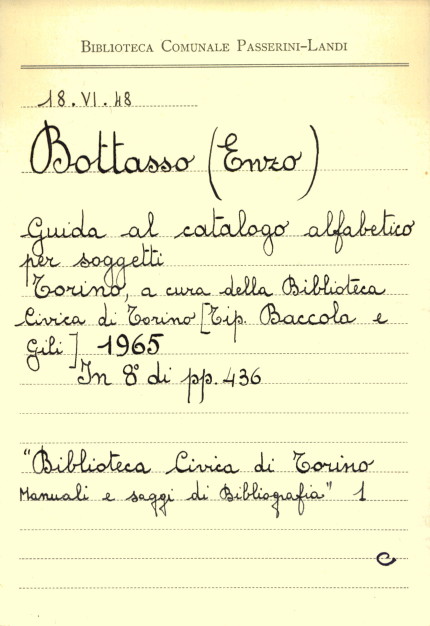 BIBLIOTECA COMUNALE PASSERINI-LANDI
18.VI.48
Bottasso (Enzo)
Guida al catalogo alfabetico
per soggetti
Torino, a cura della Biblioteca
Civica di Torino [Tip. Baccola e
Gili] 1965
In 8° di pp. 436
"Biblioteca Civica di Torino
Manuali e saggi di Bibliografia" 1
C